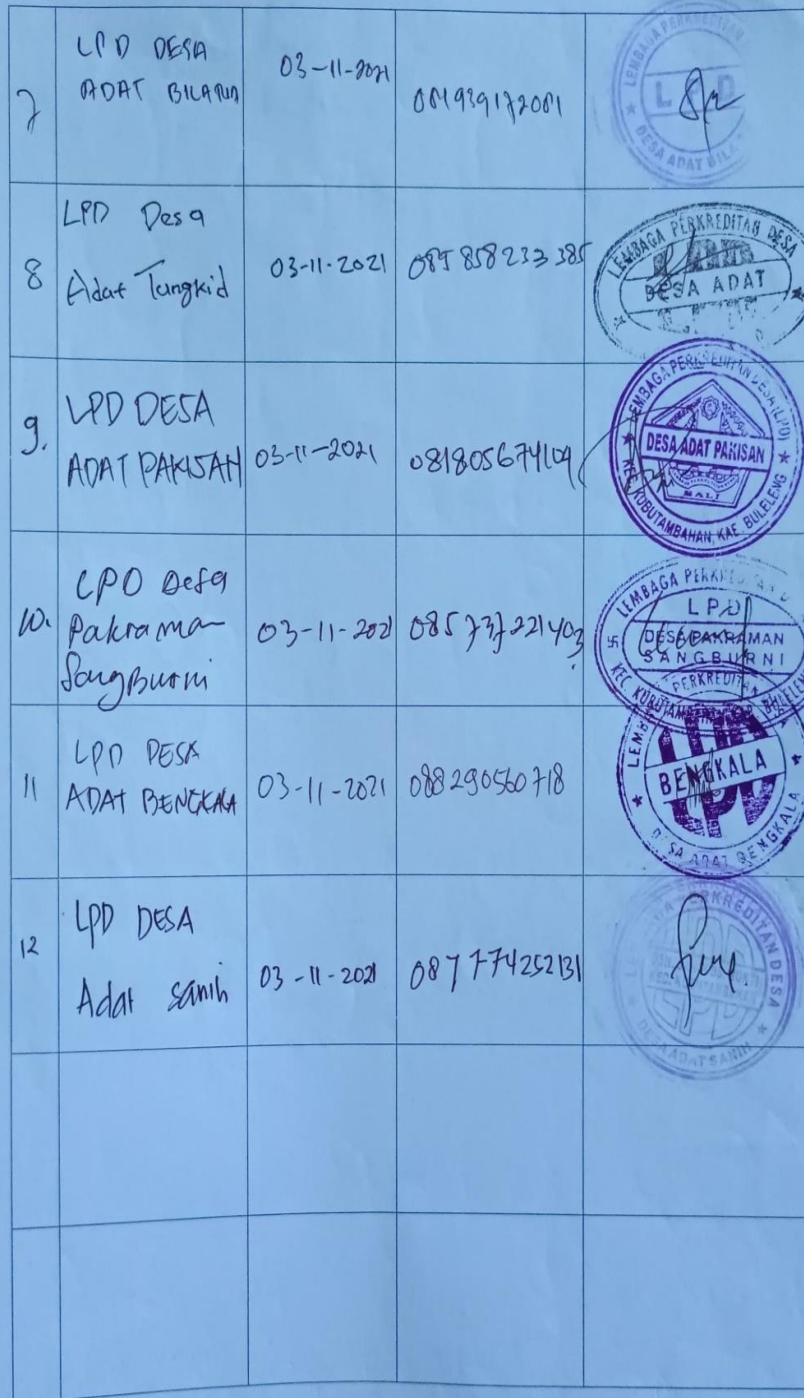 7
LPD DESA
ADAT BILA
03-11-2021
081939172081
LEMBAGA PERKREDITAN
LPD
DESA ADAT BILA
8
LPD Desa
Adat Tungkid
03-11-2021
085 858 233 385
LEMBAGA PERKREDITAN DESA
DESA ADAT
9.
LPD DESA
ADAT PAKISAN
03-11-2021
081805674109
LEMBAGA PERKREDITAN DESA (LPD)
DESA ADAT PAKISAN
BALI
KEC. KUBUTAMBAHAN, KAB. BULELENG
10.
LPD Desa
Pakraman
SangBurni
03-11-2021
085 737 221 403
LEMBAGA PERKREDITAN
LPD
DESA PAKRAMAN
SANGBURNI
PERKREDITAN
11
LPD DESA
ADAT BENGKALA
03-11-2021
088290560718
BENGKALA
LPD
DESA ADAT BENGKALA
12
LPD DESA
Adat Sanih
03-11-2021
087774252131
PERKREDITAN DESA
LPD
DESA ADAT SANIH